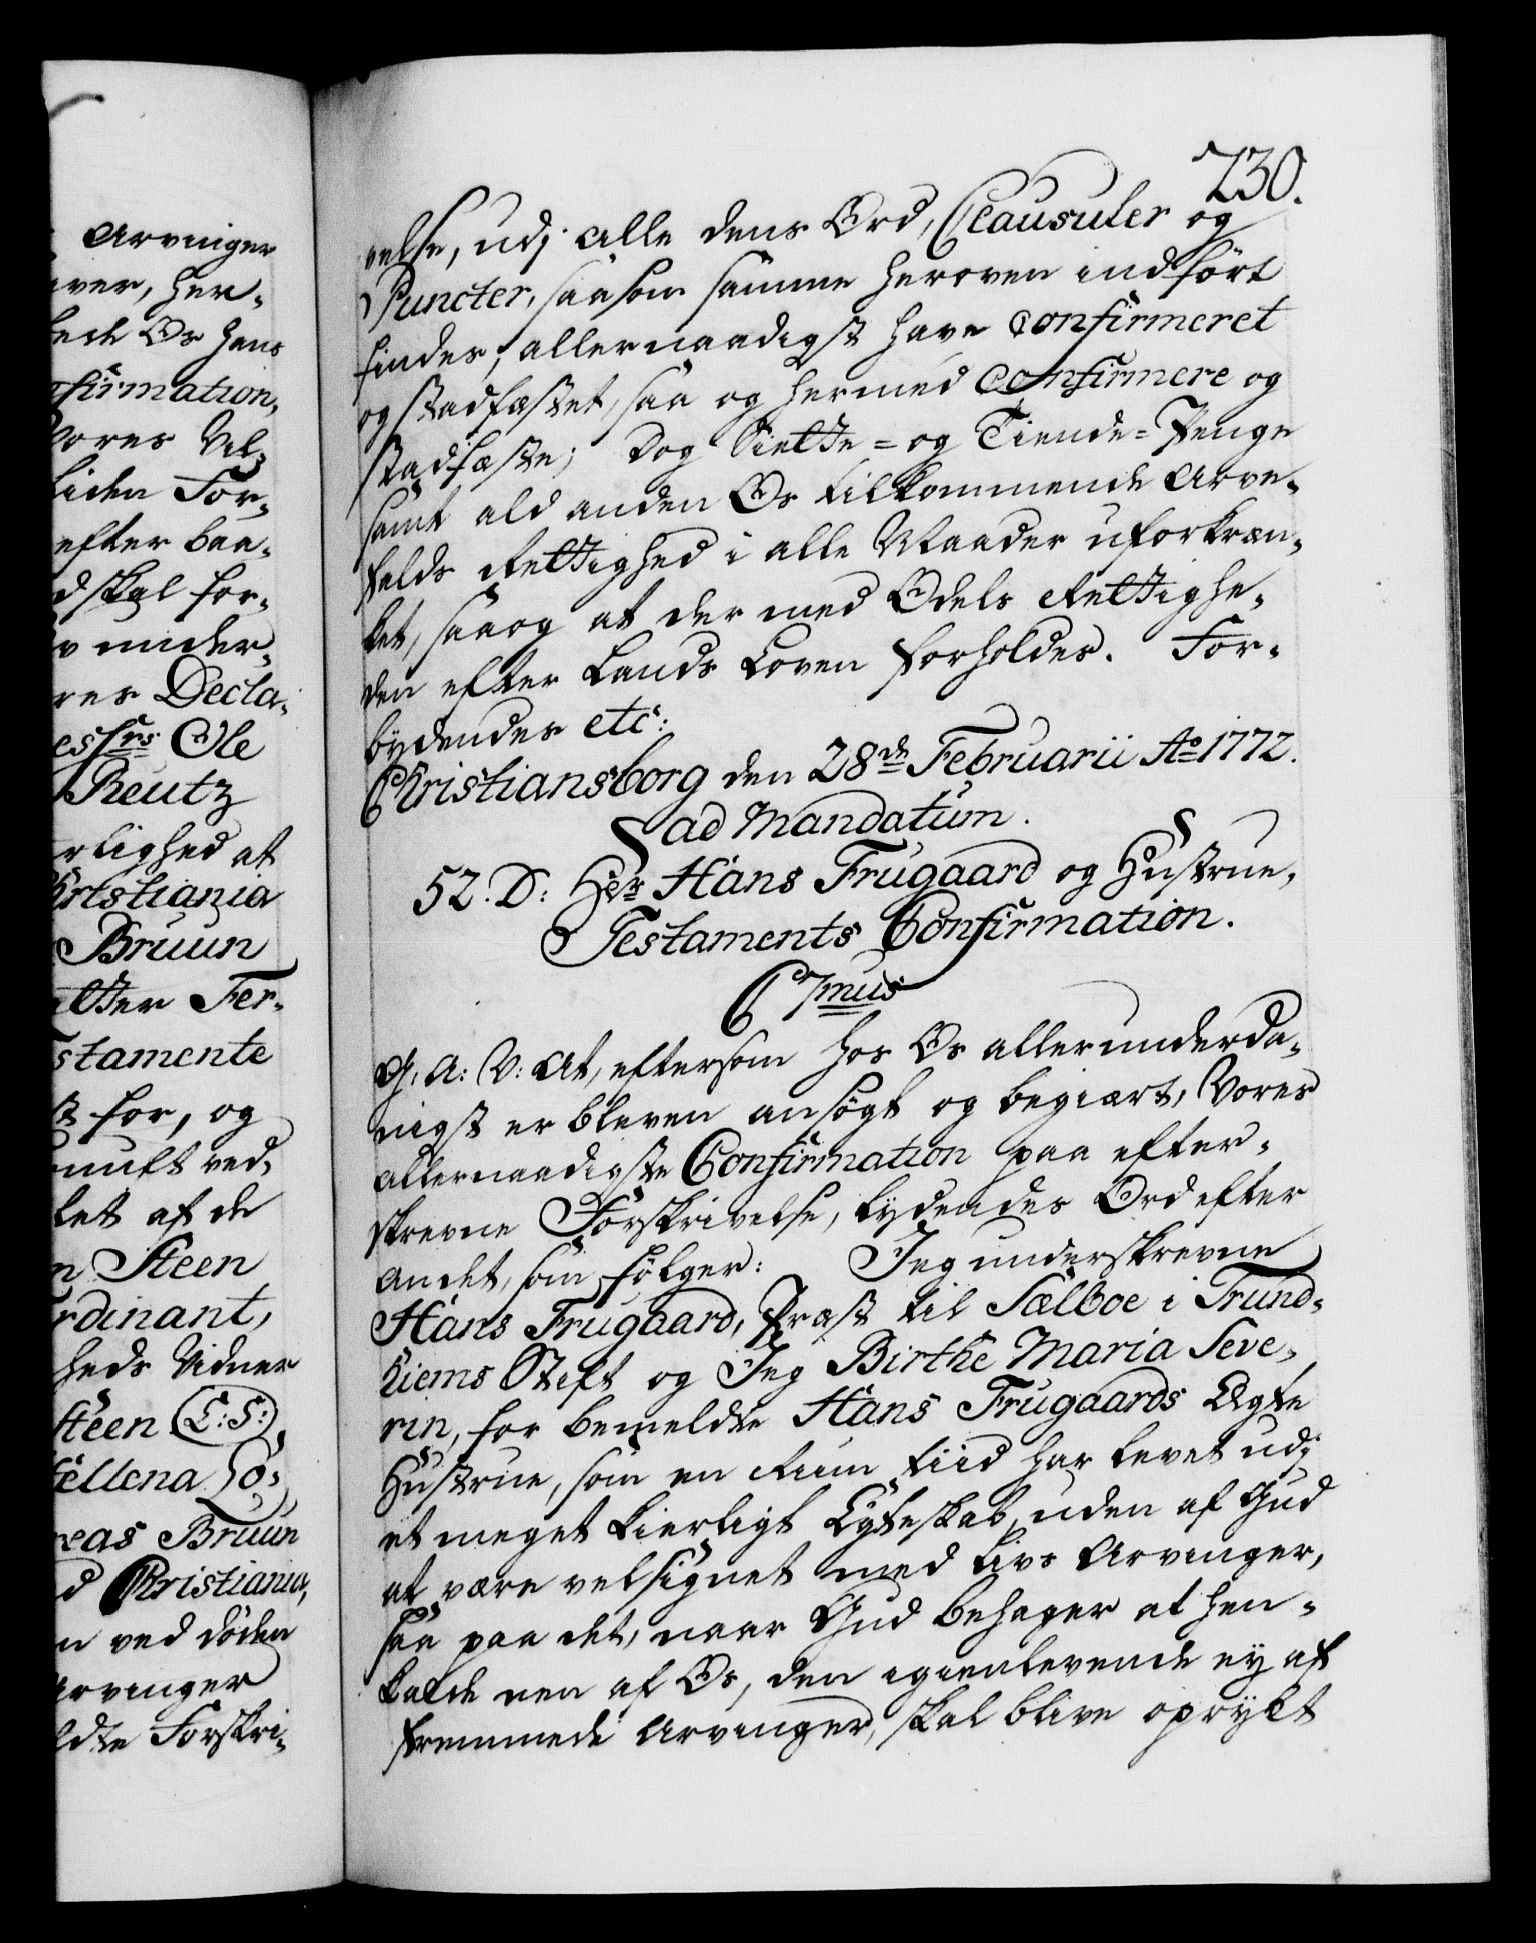 Arvinger
aver, her-
lede Os hans
nfirmation,
Vores Vel-
liden For-
efter baa-
d skal for-
v under-
res Decla-
es hrs Ole
Reutz
rlighed at
hristiania
Bruun
atter Fer-
stamente
st for, og
nuft ved-
let af de
n Steen
rdinant,
heds Vidner
Steen (L:S:)
ellena So-
eas Bruun
d Christiania,
n ved døden
Arvinger
ldte Forskri-
730.
velse, udj alle dens Ord, Clausuler og
Puncter, saasom samme heroven indført
findes, allernaadigst have confirmeret
og stadfæstet, saa og hermed confirmere og
stadfæste; Dog Siette= og Tiende=Penge
samt ald anden Os tilkommende Arve-
falds Rettighed i alle Maader uforkræn-
ket, saa og at der med Odels Rettighe-
den efter Lands Loven forholdes. For-
bydendes etc:
Christiansborg den 28de Februarii Ao 1772.
ad Mandatum.
52. D: Her Hans Frugaard og Hustrue,
Testaments Confirmation.
C 7mus
G: A: V: At, eftersom hos Os allerunderda-
nigst er bleven ansøgt og begiært, Vores
allernaadigste Confirmation paa efter-
skrevne Forskrivelse, lydendes Ord efter
andet, som følger: Jeg underskrevne
Hans Frugaard, Præst til Sælboe i Trund-
hiems Stift og Jeg Birthe Maria Seve-
rin, for bemeldte Hans Frugaards Ægte
Hustrue, som en Rum tiid har levet udj
et meget kierligt Egteskab, uden af Gud
at være velsignet med Livs Arvinger,
saa paa det, naar Gud behager at hen-
kalde een af Os, den igienlevende ey af
fremmede Arvinger, skal blive oprykt